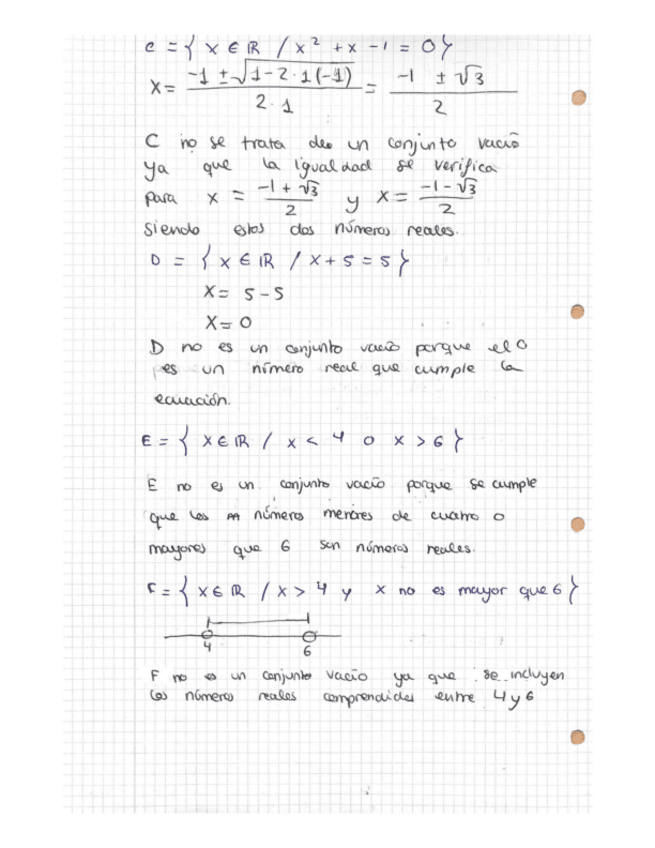 C = { X ∈ ℝ / x² + x - 1 = 0 }
X = (-1 ± √(1 - 2 · 1 (-1))) / (2 · 1) = (-1 ± √3) / 2
C no se trata de un conjunto vacío
ya que la igualdad se verifica
para x = (-1 + √3) / 2 y x = (-1 - √3) / 2
Siendo estos dos números reales.
D = { X ∈ ℝ / X + 5 = 5 }
X = 5 - 5
X = 0
D no es un conjunto vacío porque el 0
es un número real que cumple la
ecuación.
E = { X ∈ ℝ / x < 4 o x > 6 }
E no es un conjunto vacío porque se cumple
que los números menores de cuatro o
mayores que 6 son números reales.
F = { X ∈ ℝ / x > 4 y x no es mayor que 6 }
4 6
F no es un conjunto vacío ya que se incluyen
los números reales comprendidos entre 4 y 6